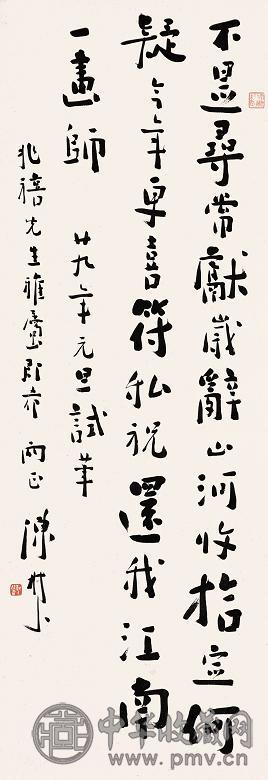 不是尋常獻歲辭山河收拾定何
疑今年更喜符私祝還我江南
一畫師
廿九年元旦試筆
兆禧先生雅屬即希兩正
陳樹人
中华收藏网
www.pmv.cn